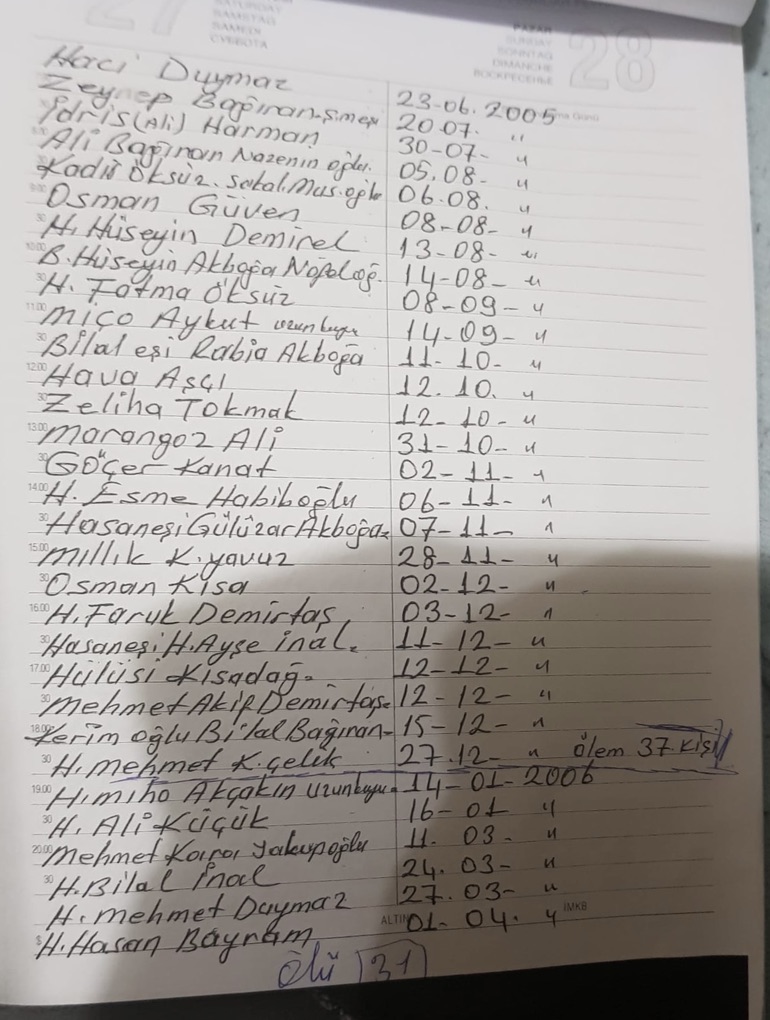 27
SATURDAY
SAMSTAG
SAMEDI
СУББОТА
PAZAR
SUNDAY
SONNTAG
DIMANCHE
ВОСКРЕСЕНЬЕ
28
Haci Duymaz 23-06.2005
Zeynep Bağıran 20.07. "
İdris (Ali) Harman 30-07- "
Ali Bağıran Nazenin oğlu. 05.08- "
Kadir Öksüz. Sakal.Mus.oğlu 06.08. "
Osman Güven 08-08- "
H. Hüseyin Demirel 13-08- "
B. Hüseyin Akboğa 14-08- "
H. Fatma Öksüz 08-09- "
Miço Aykut uzunkuyu 14-09- "
Bilal eşi Rabia Akboğa 11-10- "
Hava Aşçı 12.10. "
Zeliha Tokmak 12-10- "
Marangoz Ali 31-10- "
Göçer Kanat 02-11- "
H. Esme Habiboğlu 06-11- "
Hasaneşi Gülüzar Akboğa 07-11- "
Millik K.yavuz 28-11- "
Osman Kısa 02-12- "
H. Faruk Demirtaş 03-12- "
Hasaneşi H. Ayşe inal. 11-12- "
Hülüsi Kısadağ. 12-12- "
Mehmet Akif Demirtaş. 12-12- "
Kerim oğlu Bilal Bağıran- 15-12- "
H. Mehmet K.çelik 27.12- " ölem 37.kişi
H. miho Akçakın uzunkuyu. 14-01-2006
H. Ali Küçük 16-01 "
Mehmet Kara Yakupoğlu 11.03- "
H. Bilal İnal 24.03- "
H. Mehmet Duymaz 27.03- "
H. Hasan Bayram 01-04. "
ALTIN İMKB
Ölü 31